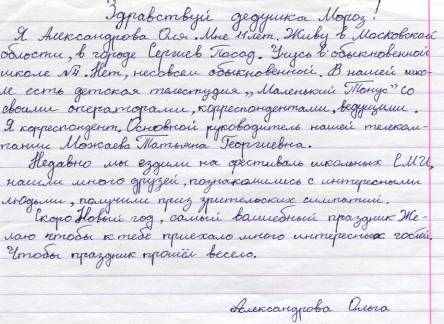 Здравствуй дедушка Мороз!
Я Александрова Оля. Мне 11 лет. Живу в Московской
области, в городе Сергиев Посад. Учусь в обыкновенной
школе №4. Нет, несовсем обыкновенной. В нашей шко-
ле есть детская телестудия „Маленький Тонус" со
своими операторами, корреспондентами, ведущими.
Я корреспондент. Основной руководитель нашей телеком-
пании Можаева Татьяна Георгиевна.
Недавно мы ездили на фестиваль школьных СМИ,
нашли много друзей, познакомились с интересными
людьми, получили приз зрительских симпатий.
Скоро Новый год, самый волшебный праздник. Же-
лаю чтобы к тебе приехало много интересных гостей.
Чтобы праздник прошёл весело.
Александрова Ольга